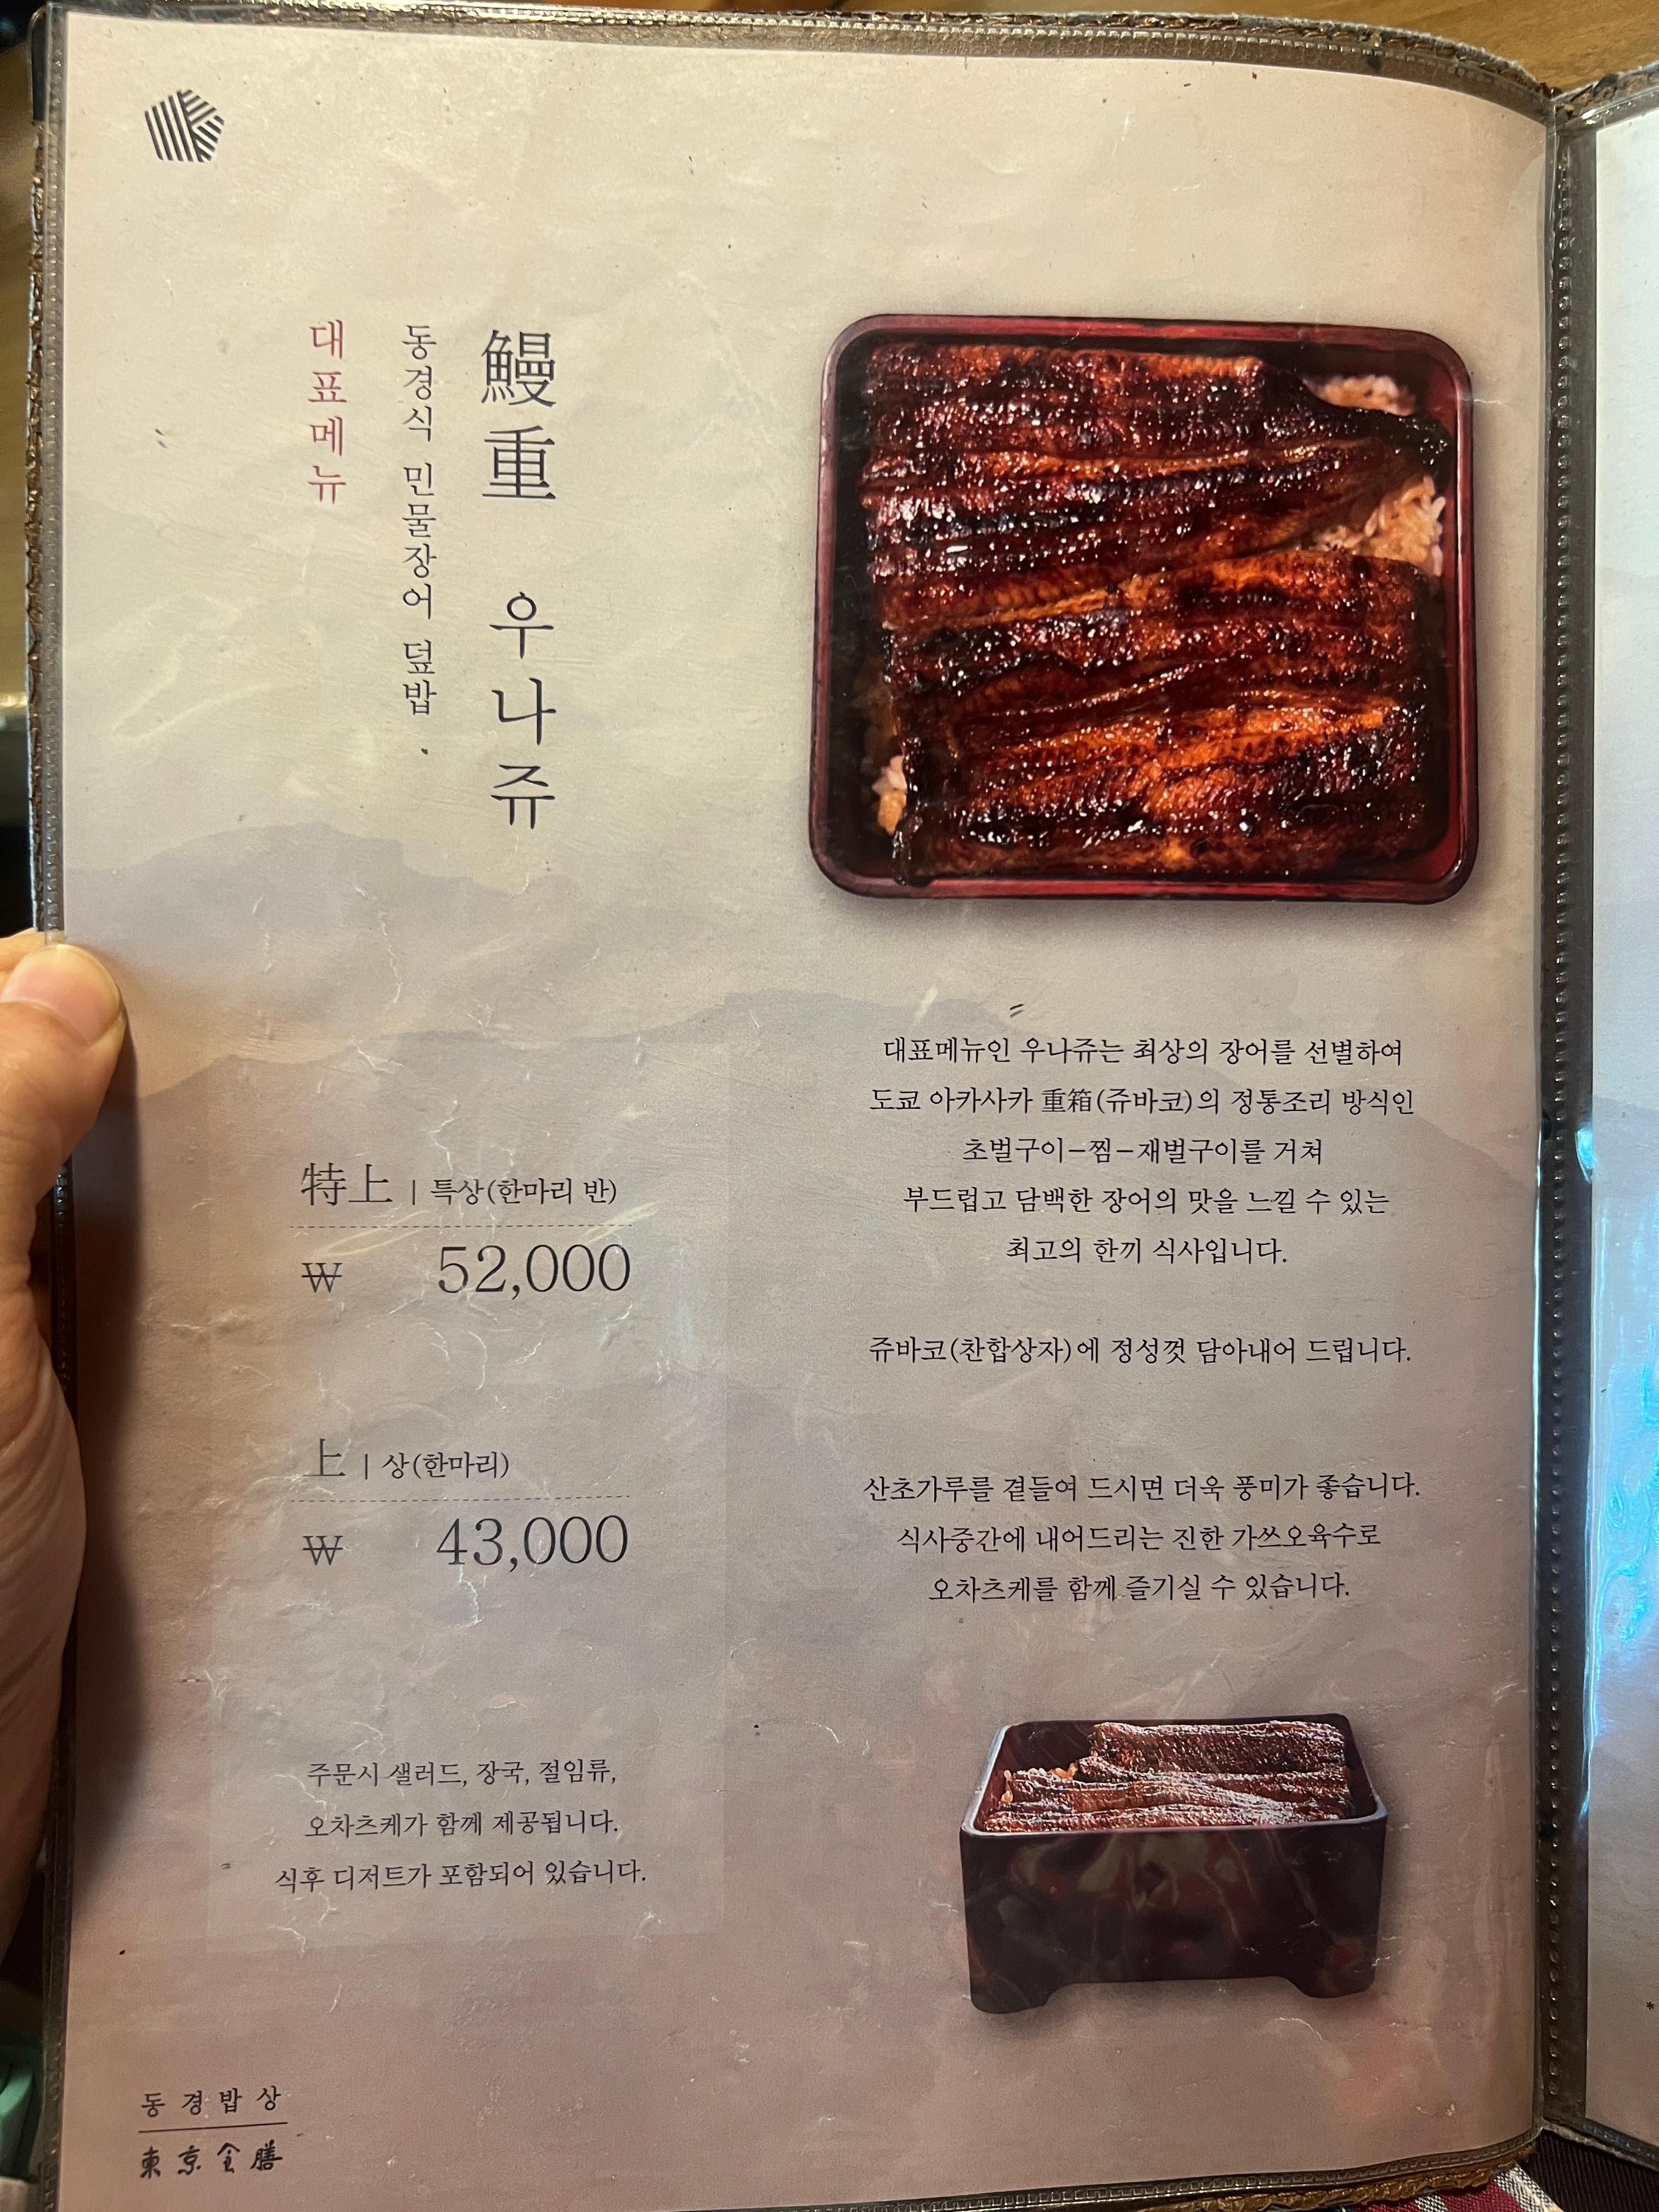 鰻重 우나쥬
동경식 민물장어 덮밥
대표메뉴
대표메뉴인 우나쥬는 최상의 장어를 선별하여
도쿄 아카사카 重箱(쥬바코)의 정통조리 방식인
초벌구이–찜–재벌구이를 거쳐
부드럽고 담백한 장어의 맛을 느낄 수 있는
최고의 한끼 식사입니다.
쥬바코(찬합상자)에 정성껏 담아내어 드립니다.
산초가루를 곁들여 드시면 더욱 풍미가 좋습니다.
식사중간에 내어드리는 진한 가쓰오육수로
오차츠케를 함께 즐기실 수 있습니다.
特上 | 특상(한마리 반)
₩ 52,000
上 | 상(한마리)
₩ 43,000
주문시 샐러드, 장국, 절임류,
오차츠케가 함께 제공됩니다.
식후 디저트가 포함되어 있습니다.
동경밥상
東京食膳
*